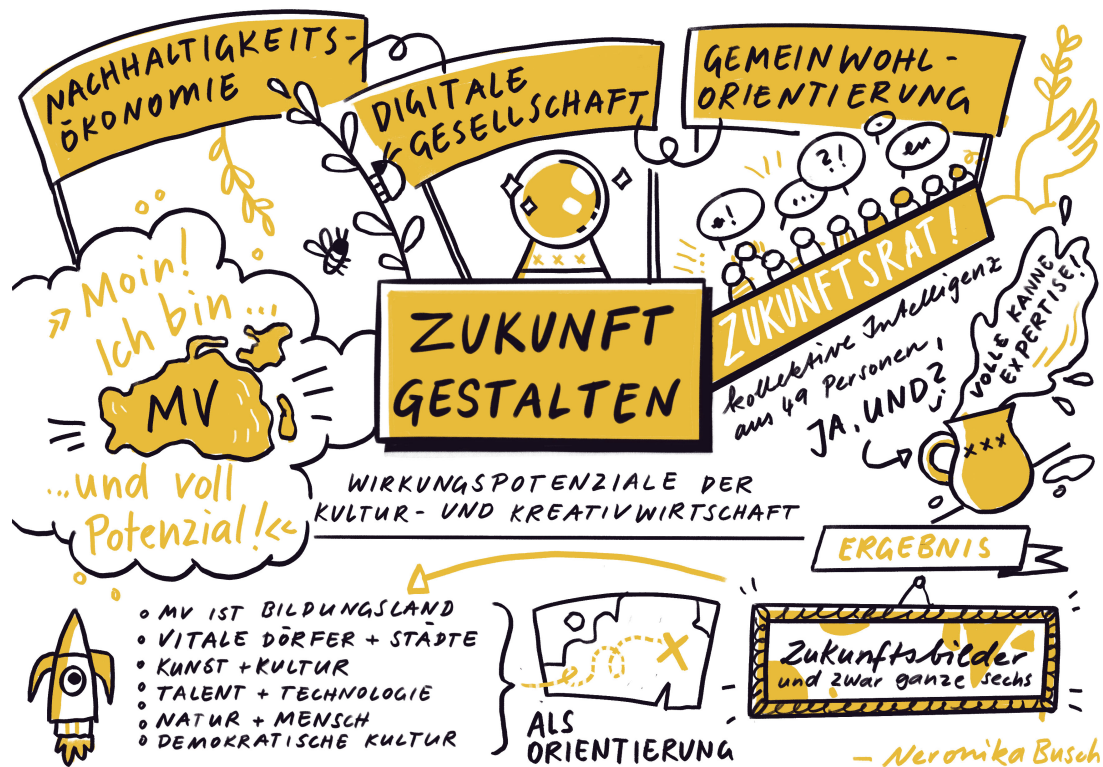 NACHHALTIGKEITS-
ÖKONOMIE
DIGITALE
GESELLSCHAFT
GEMEINWOHL-
ORIENTIERUNG
#!
...
?!
.
en
ZUKUNFTSRAT!
kollektive Intelligenz
aus 49 Personen,
JA, UND?
VOLLE KANNE
EXPERTISE!
»Moin!
Ich bin...
MV
...und voll
Potenzial!«
ZUKUNFT
GESTALTEN
WIRKUNGSPOTENZIALE DER
KULTUR- UND KREATIVWIRTSCHAFT
ERGEBNIS
Zukunftsbilder
und zwar ganze sechs
MV IST BILDUNGSLAND
VITALE DÖRFER + STÄDTE
KUNST + KULTUR
TALENT + TECHNOLOGIE
NATUR + MENSCH
DEMOKRATISCHE KULTUR
ALS
ORIENTIERUNG
– Neronika Busch